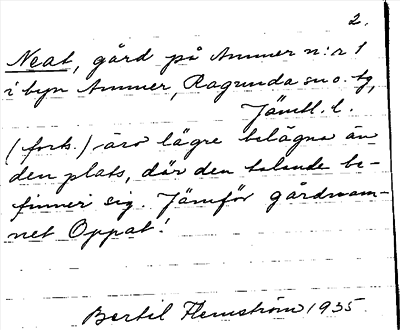 2.
Neat, gård på Ammer n:r 1
i byn Ammer, Ragunda sn o. tg,
Jämtl. l.
(forts.) äro lägre belägna än
den plats, där den talande be-
finner sig. Jämför gårdsnam-
net Oppat!
Bertil Flemström 1935.